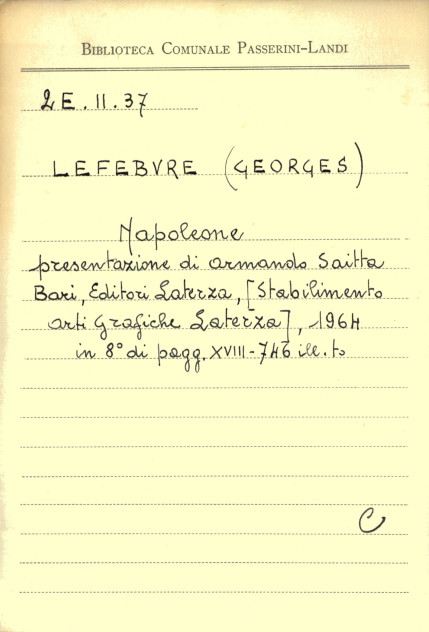 BIBLIOTECA COMUNALE PASSERINI-LANDI
2E.II.37
LEFEBVRE (GEORGES)
Napoleone
presentazione di Armando Saitta
Bari, Editori Laterza, [Stabilimento
Arti Grafiche Laterza], 1964
in 8° di pagg. XVIII-746 ill.to
C